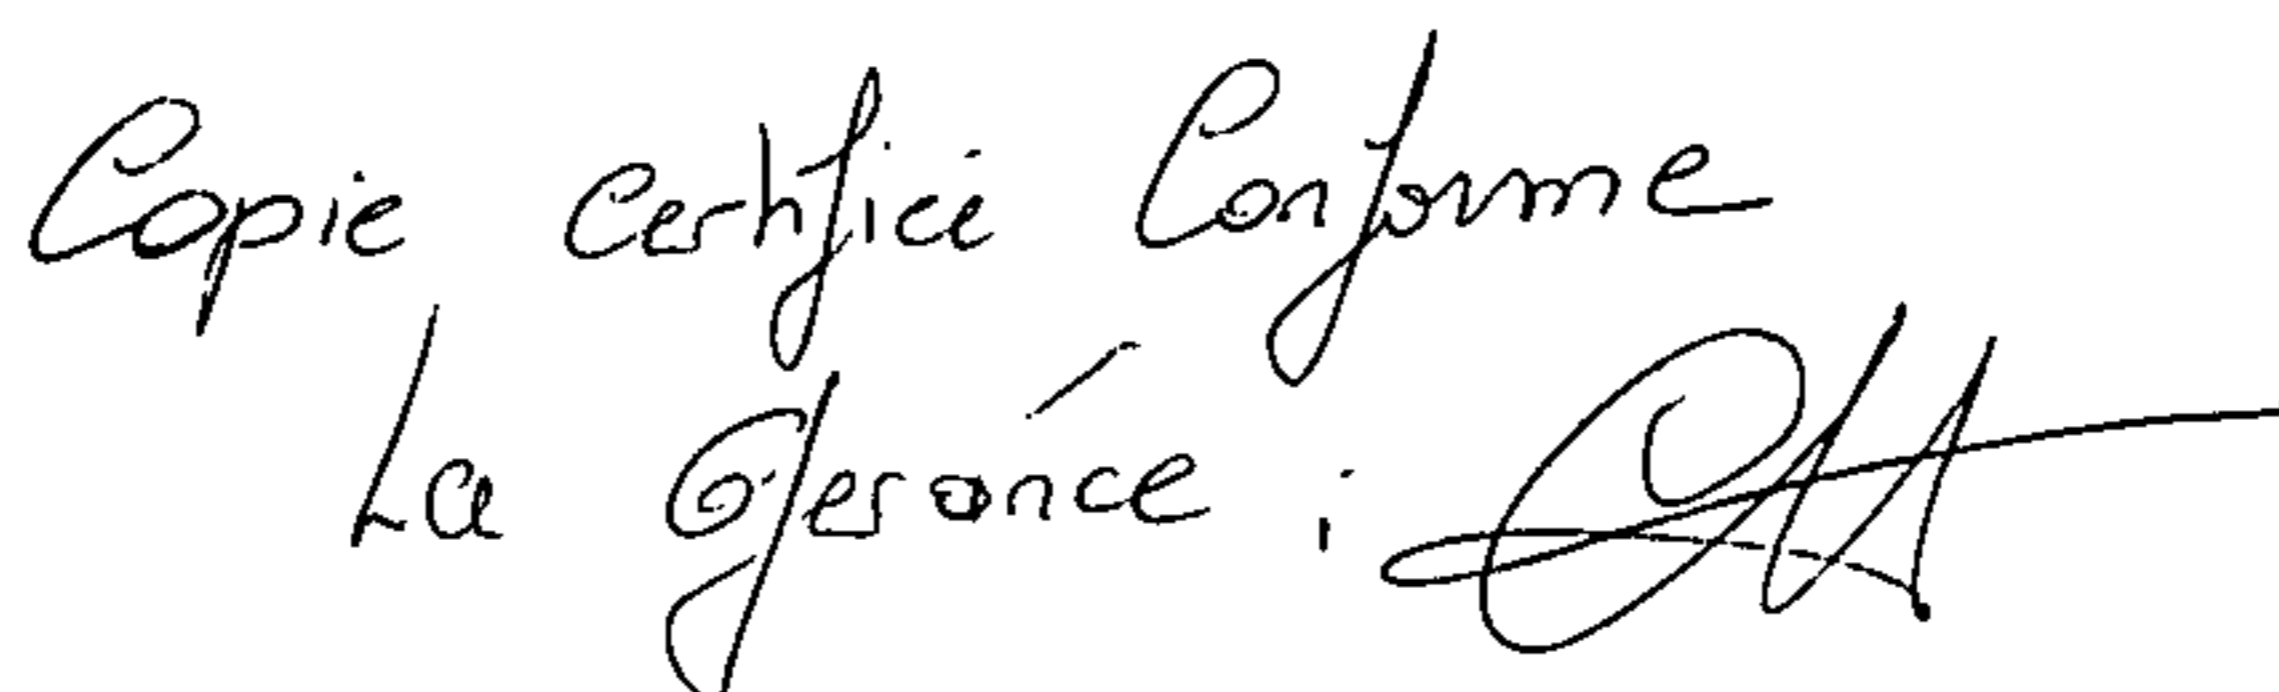 Copie certifié Conforme
La Gérance :